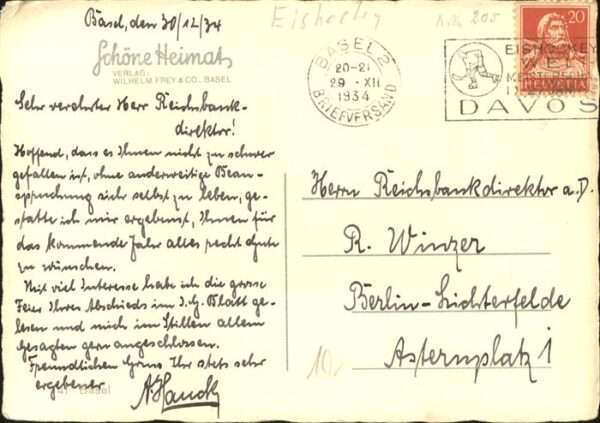 Basel, den 30/12/34
Schöne Heimat
VERLAG:
WILHELM FREY & CO., BASEL
Sehr verehrter Herr Reichsbank-
direktor!
Hoffend, dass es Ihnen nicht zu schwer
gefallen ist, ohne anderweitige Bean-
spruchung sich selbst zu leben, ge-
statte ich mir ergebenst, Ihnen für
das kommende Jahr alles recht Gute
zu wünschen.
Mit viel Interesse habe ich die grosse
Feier Ihres Abschieds im I.G. Blatt ge-
lesen und mich im Stillen allem
Gesagten gern angeschlossen.
Freundlichen Gruss Ihr stets sehr
ergebener
A. Hauck
Eishockey
200
BASEL 2
20-21
29.-XII
1934
BRIEFVERSAND
EISHOCKEY
WELT
MEISTERSCHAFT
DAVOS
20
HELVETIA
Herrn Reichsbankdirektor a.D.
R. Winzer
Berlin-Lichterfelde
Asternplatz 1
10.-